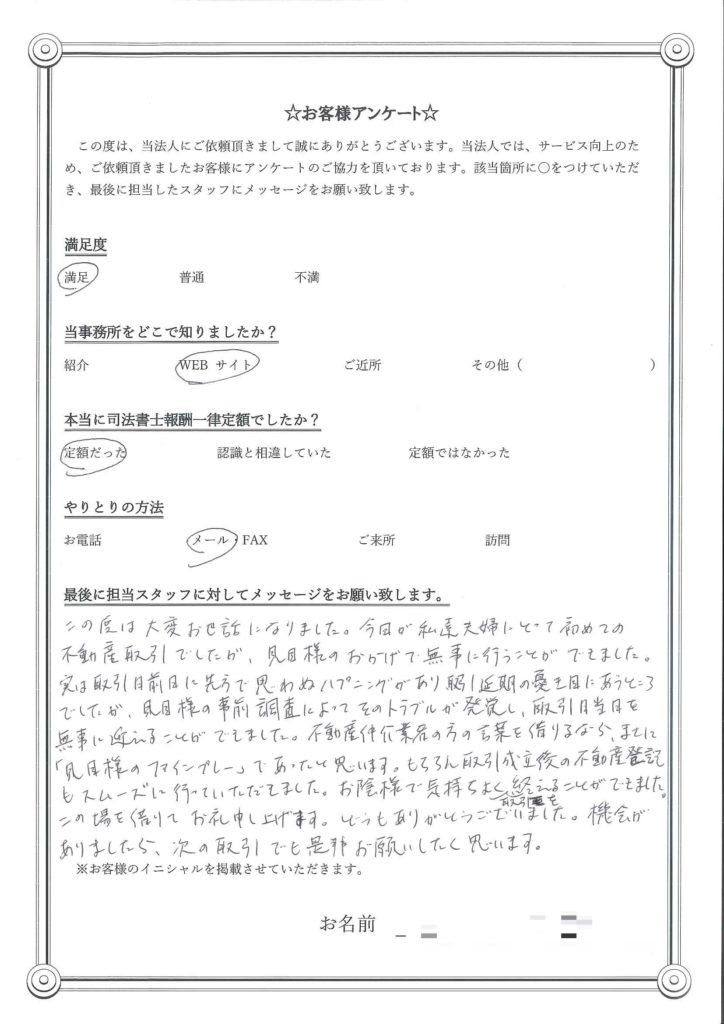 ☆お客様アンケート☆
この度は、当法人にご依頼頂きまして誠にありがとうございます。当法人では、サービス向上のた
め、ご依頼頂きましたお客様にアンケートのご協力を頂いております。該当箇所に〇をつけていただ
き、最後に担当したスタッフにメッセージをお願い致します。
満足度
満足 普通 不満
当事務所をどこで知りましたか？
紹介 WEB サイト ご近所 その他（ ）
本当に司法書士報酬一律定額でしたか？
定額だった 認識と相違していた 定額ではなかった
やりとりの方法
お電話 メール・FAX ご来所 訪問
最後に担当スタッフに対してメッセージをお願い致します。
この度は大変お世話になりました。今日が私達夫婦にとって初めての
不動産取引でしたが、見目様のおかげで無事に行うことができました。
実は取引日前日に先方で思わぬハプニングがあり取引延期の憂き目にあうところ
でしたが、見目様の事前調査によってそのトラブルが発覚し、取引日当日を
無事に迎えることができました。不動産仲介業者の方の言葉を借りるなら、まさに
「見目様のファインプレー」であったと思います。もちろん取引成立後の不動産登記
もスムーズに行っていただきました。お陰様で気持ちよく取引を終えることができました。
この場を借りてお礼申し上げます。どうもありがとうございました。機会が
ありましたら、次の取引でも是非お願いしたく思います。
※お客様のイニシャルを掲載させていただきます。
お名前